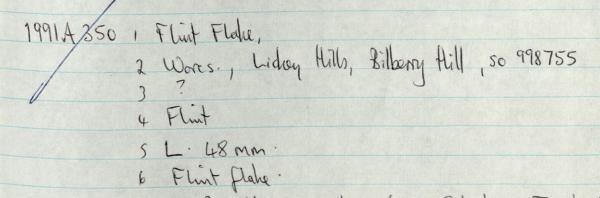 1991A350 1 Flint Flake,
2 Worcs., Lickey Hills, Bilberry Hill, SO 998755
3 ?
4 Flint
5 L. 48mm.
6 Flint flake.